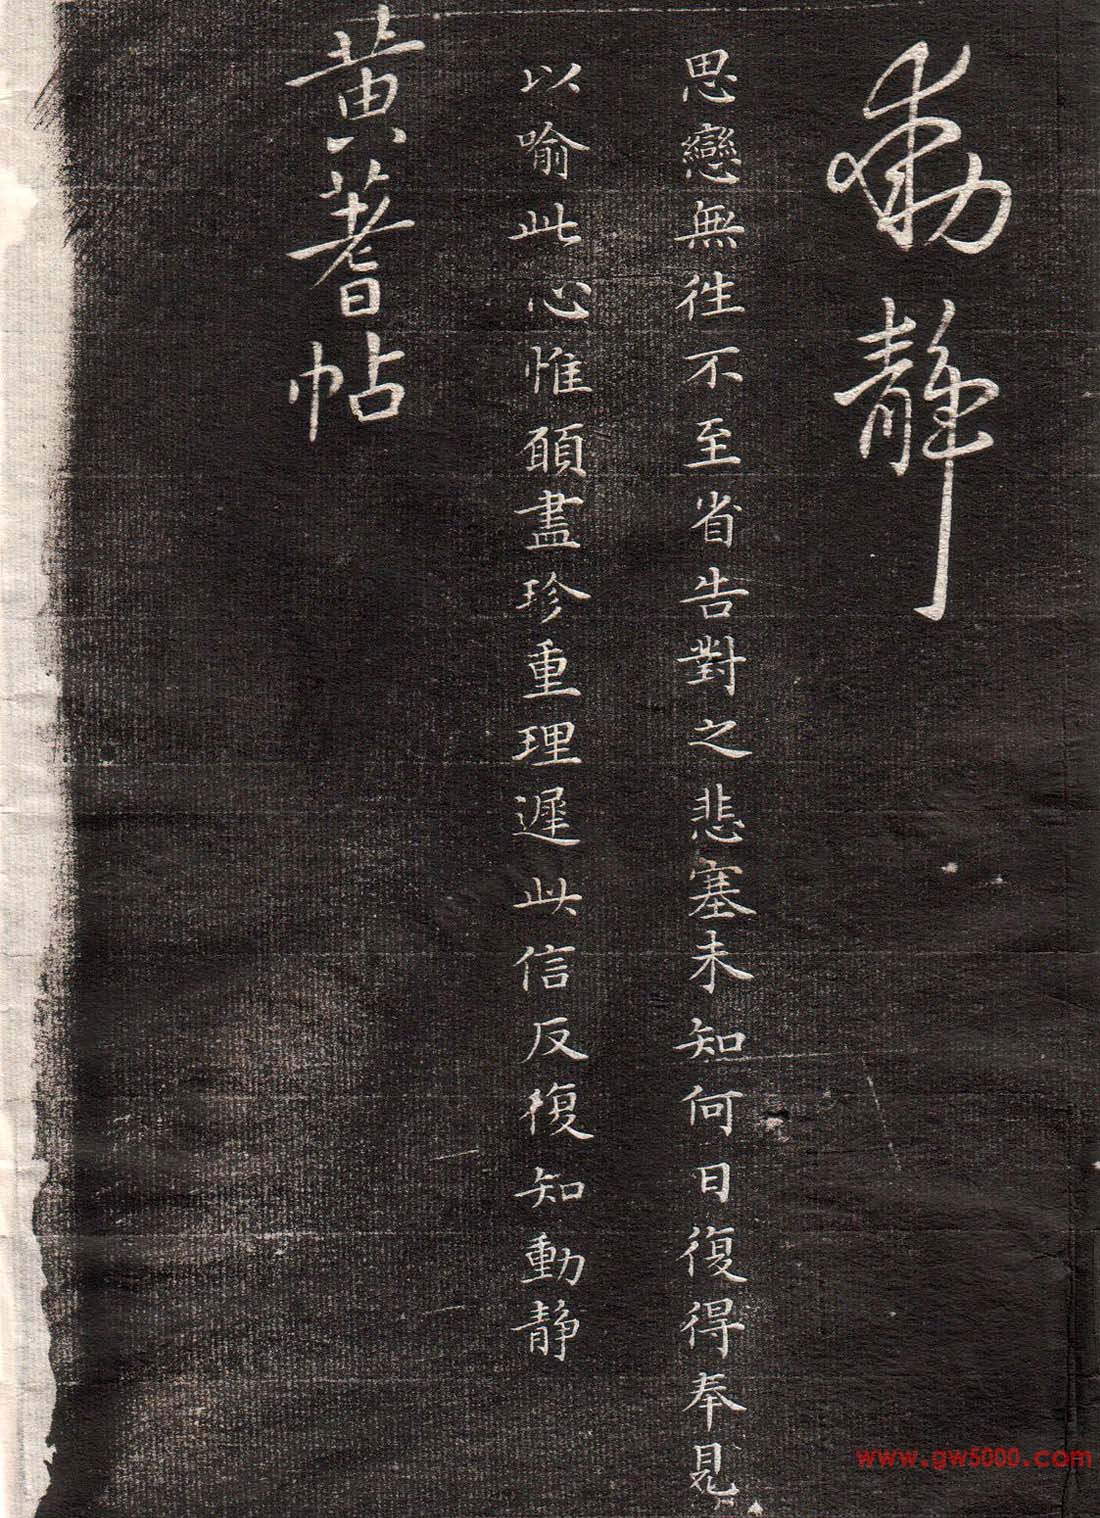 動靜
思戀無往不至省告對之悲塞未知何日復得奉見
以喻此心惟願盡珍重理遲此信反復知動靜
黃耆帖
www.gw5000.com